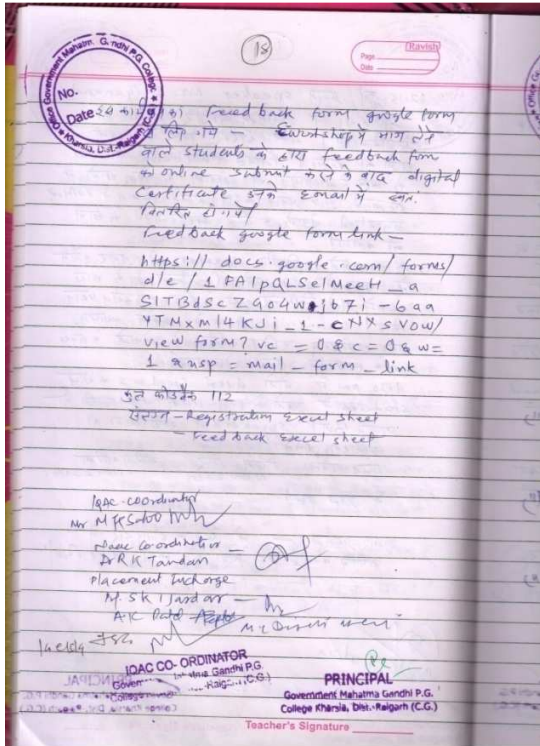 18
Ravish
Page
Date
Office Government Mahatma Gandhi P.G. College
Kharsia, Dist.-Raigarh (C.G.)
No.
Date
का Feed back form google form
workshop में भाग लेने
वाले students के द्वारा feedback form
को online submit करने के बाद digital
Certificate उनके email में स्वतः
वितरित हो गये।
Feedback google form link -
https://docs.google.com/forms/
d/e/1FAIpQLSelMeeH_a
SITBdScZ904w jb7i-6aa
YTMxml4KJi_1-cNXsVow/
viewform?vc=0&c=0&w=
1&usp=mail_form_link
कुल फीडबैक 112
संलग्न - Registration Excel sheet
- Feedback Excel sheet
IQAC-coordinator
Mr M K Sahoo
Naac Co-ordinator -
Dr R K Tandan
Placement Incharge
M. S K Ijardar -
A K Patel
IQAC CO-ORDINATOR
Mahatma Gandhi P.G.
PRINCIPAL
Government Mahatma Gandhi P.G.
College Kharsia, Dist.-Raigarh (C.G.)
Teacher's Signature